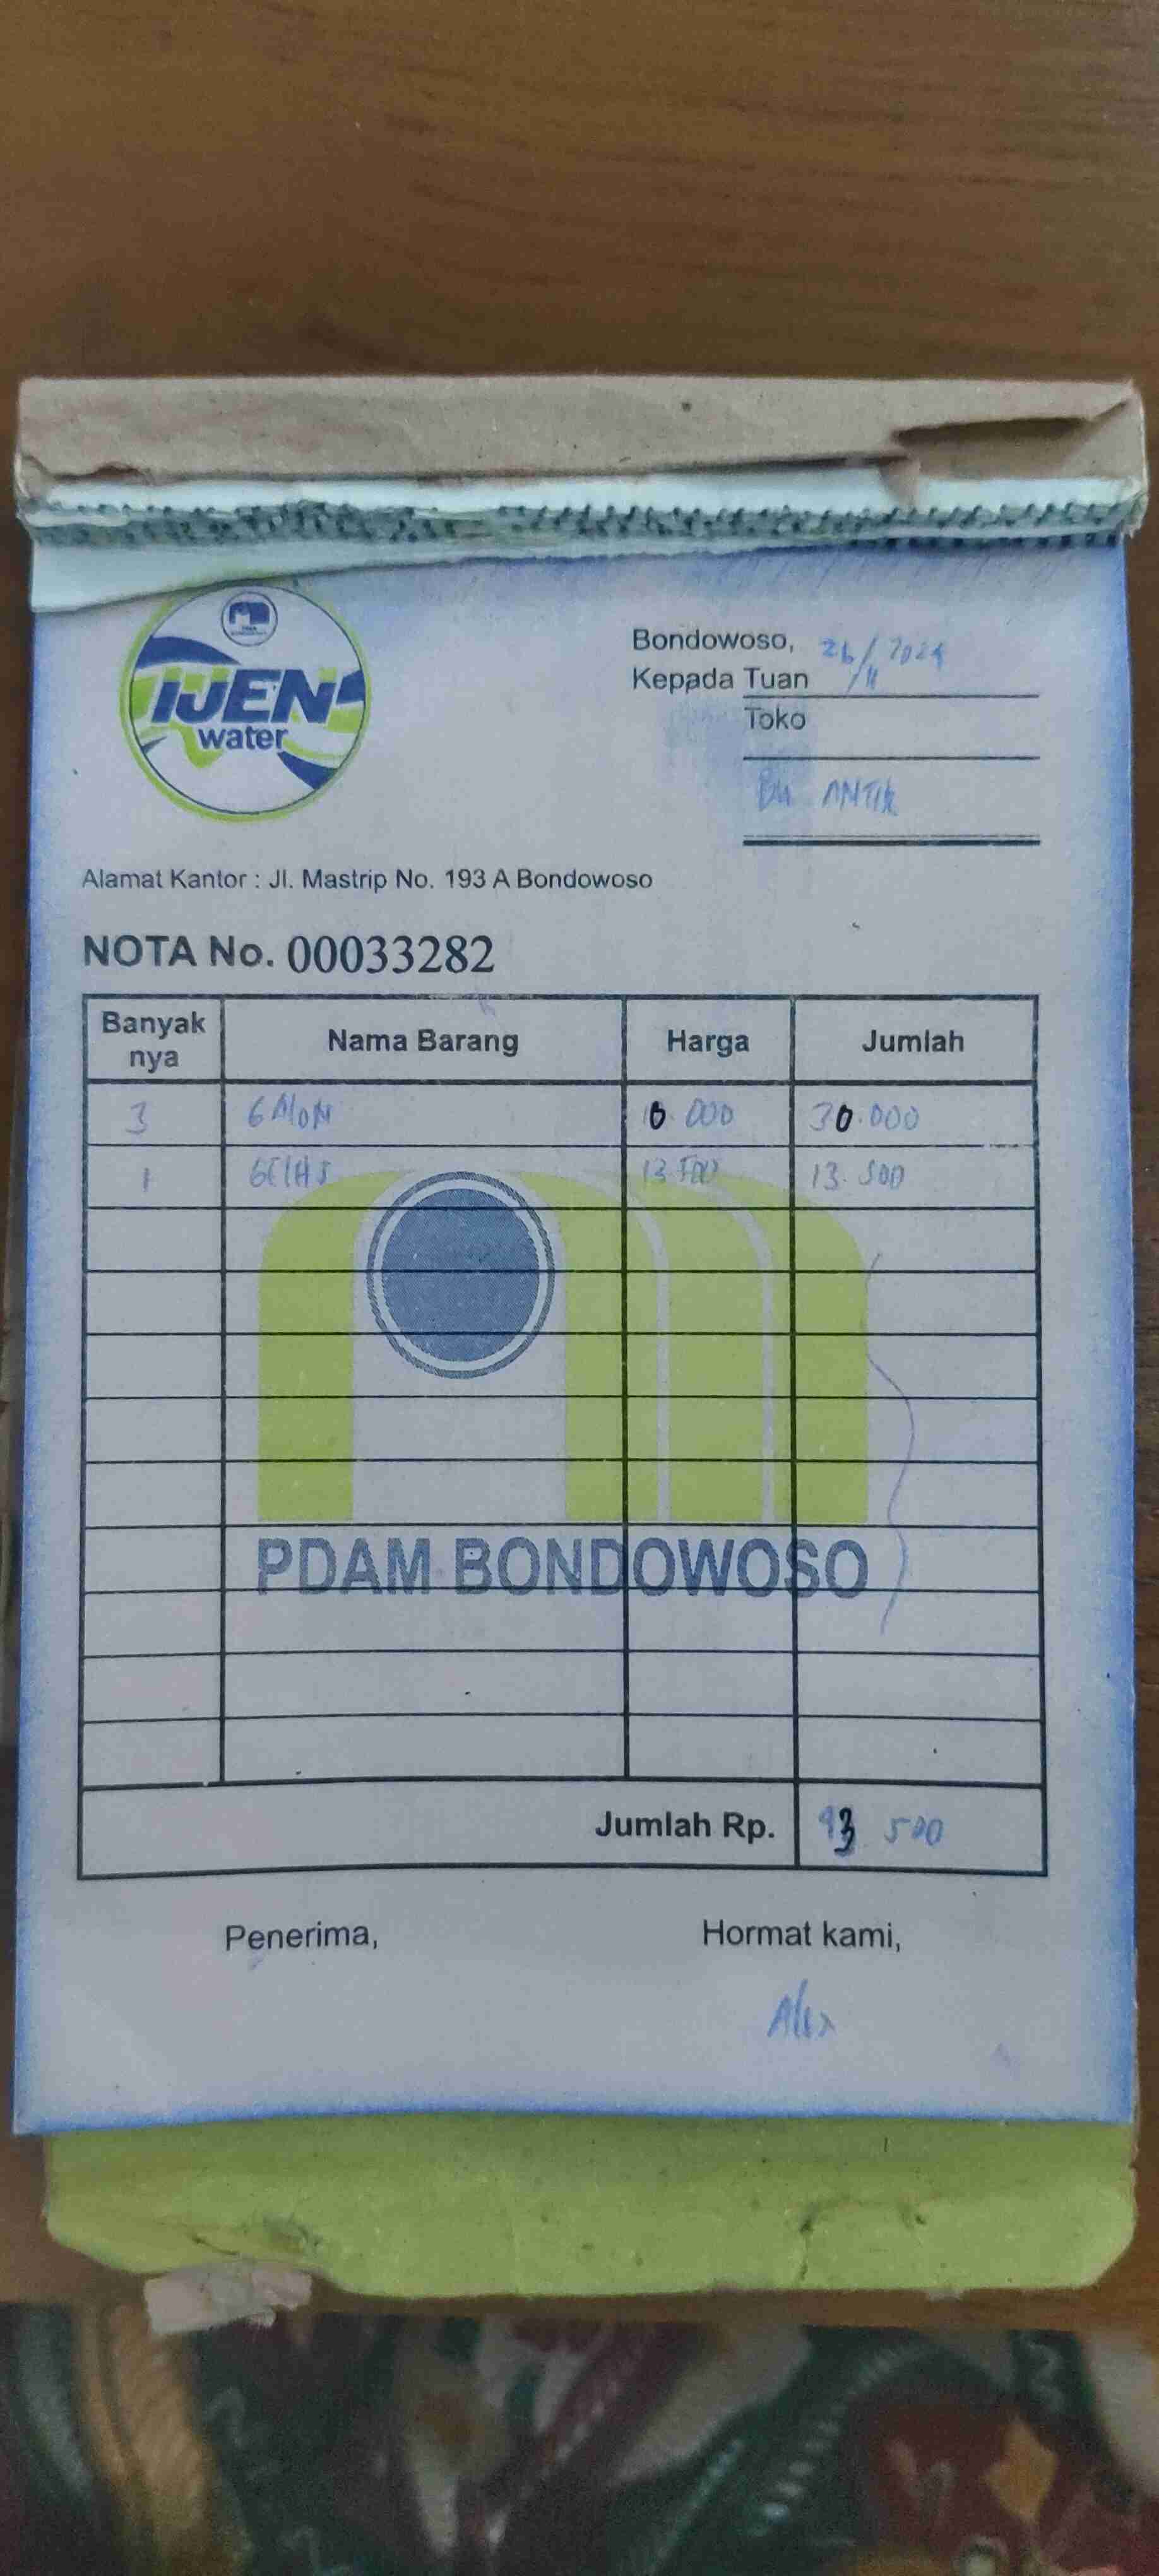 IJEN
water
Bondowoso, 26/11 2024
Kepada Tuan
Toko
BU ANTIK
Alamat Kantor : Jl. Mastrip No. 193 A Bondowoso
NOTA No. 00033282
Banyak nya Nama Barang Harga Jumlah
3 GAlON 10.000 30.000
1 GElAS 13.500 13.500
PDAM BONDOWOSO
Jumlah Rp. 43.500
Penerima, Hormat kami,
Alex